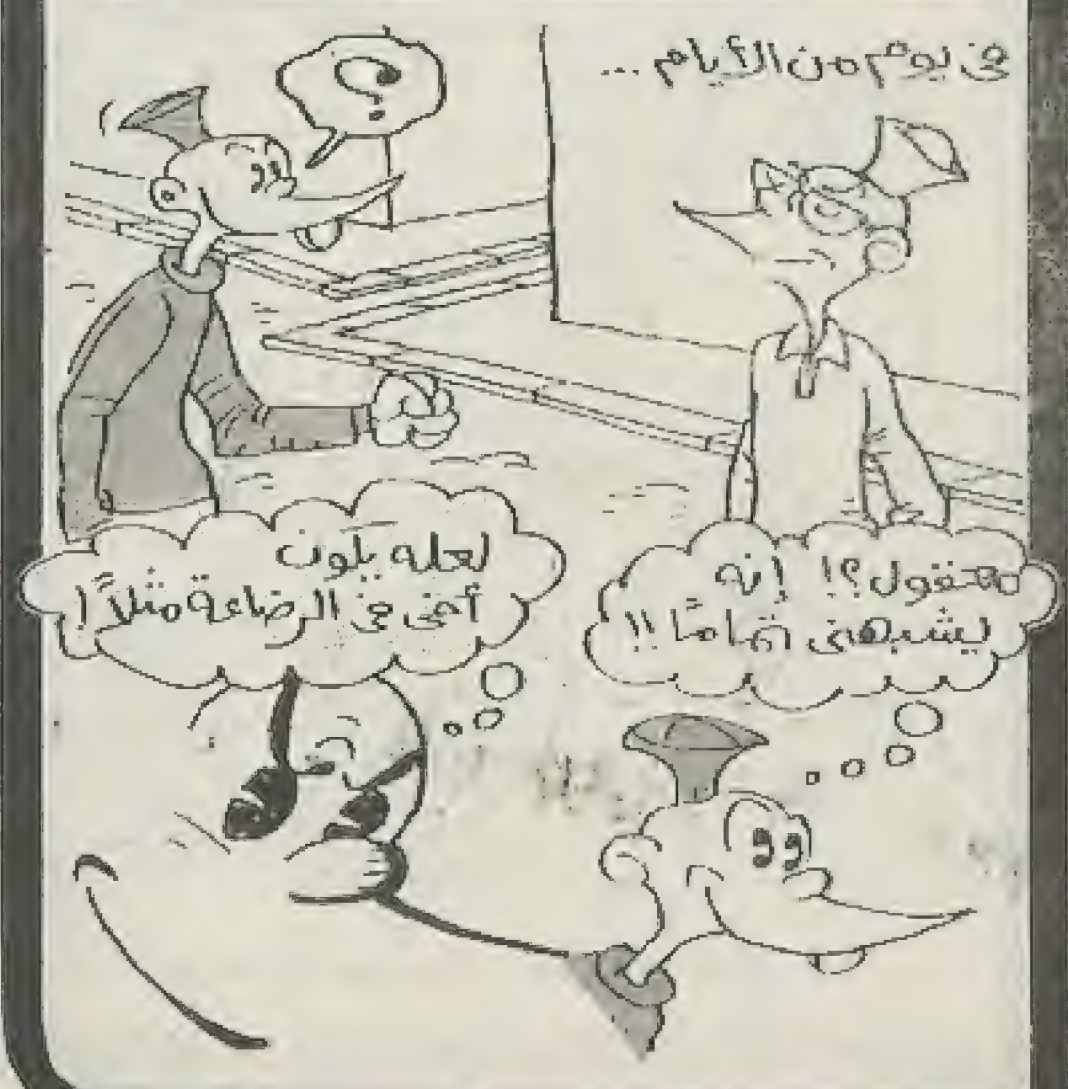 فى يوم من الأيام ...
؟
معقول؟! إنه
يشبهنى تمامًا!!
لعله يكون
أخى فى الرضاعة مثلاً!